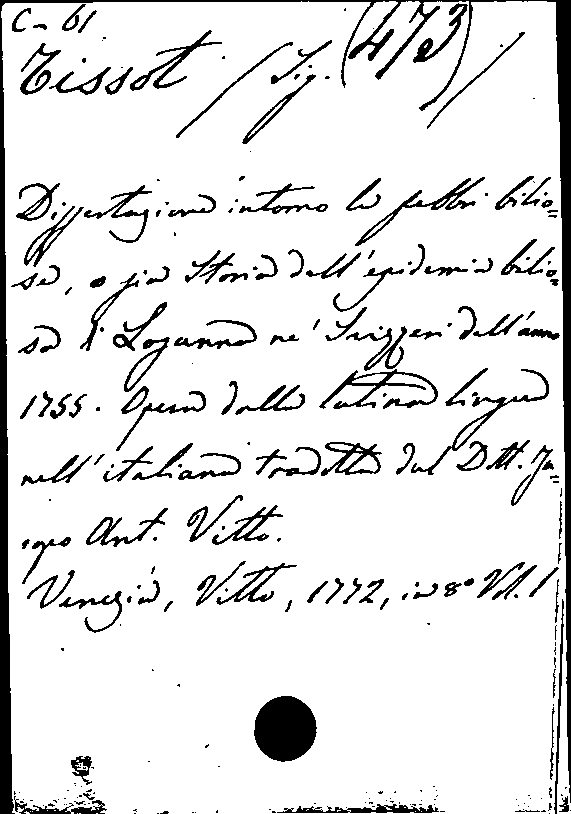 C - 61
Tissot / Sig. (473) /
Dissertazione intorno le febbri bilio=
se, o sia Storia dell'epidemia bilio=
sa di Losanna ne' Svizzeri dell'anno
1755. Opera dalla latina lingua
nell'italiana tradotta dal Dtt. Ja=
copo Ant. Vitto.
Venezia, Vitto, 1772, in 8° Vol. 1